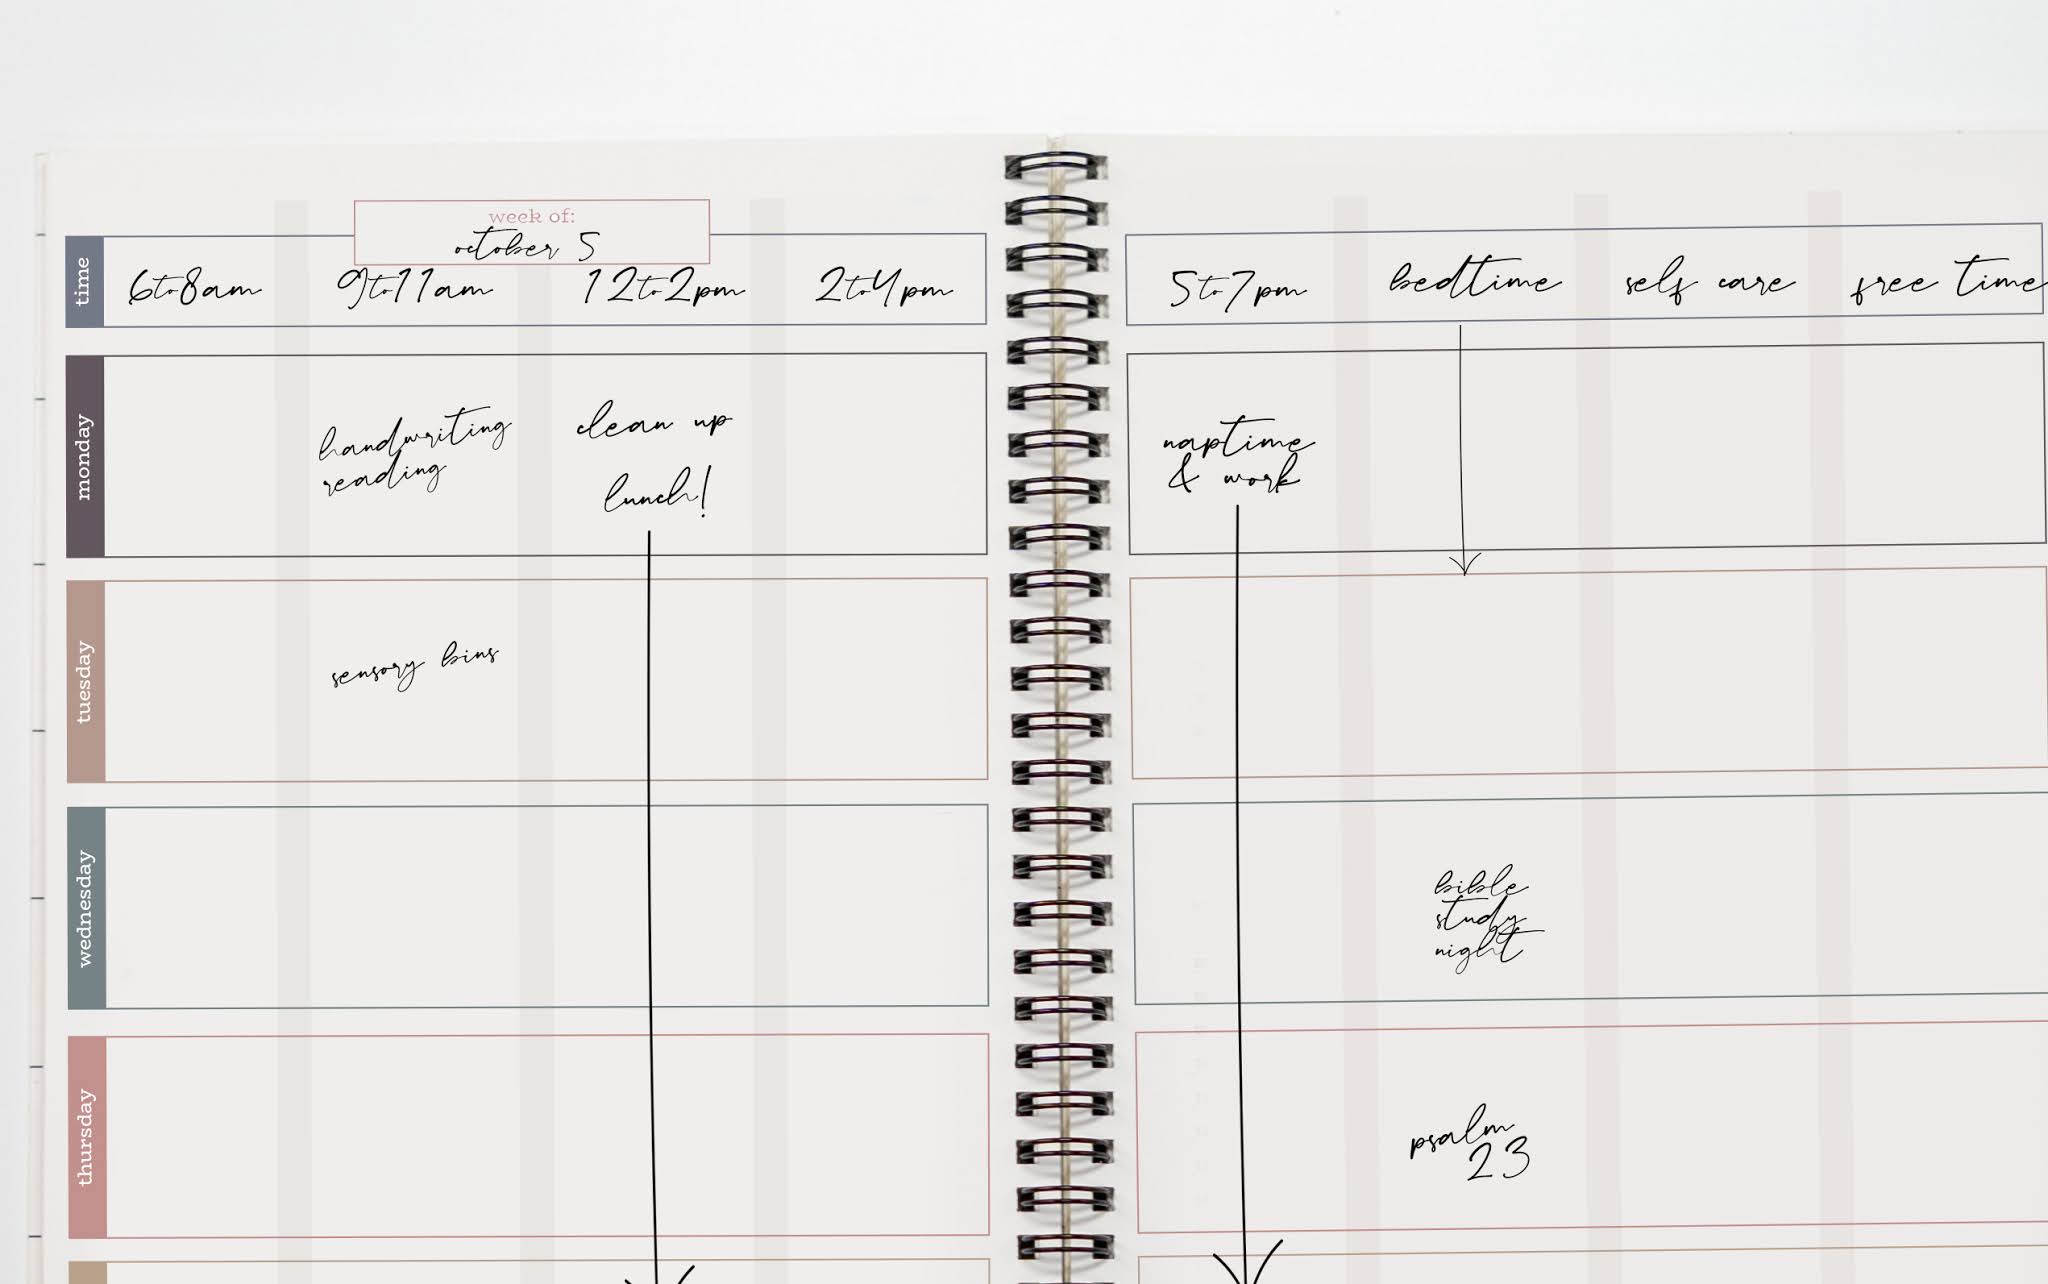 week of:
october 5
time
6to8am
9to11am
12to2pm
2to4pm
5to7pm
bedtime
self care
free time
monday
handwriting
reading
clean up
lunch!
naptime
& work
tuesday
sensory bins
wednesday
bible
study
night
thursday
psalm
23